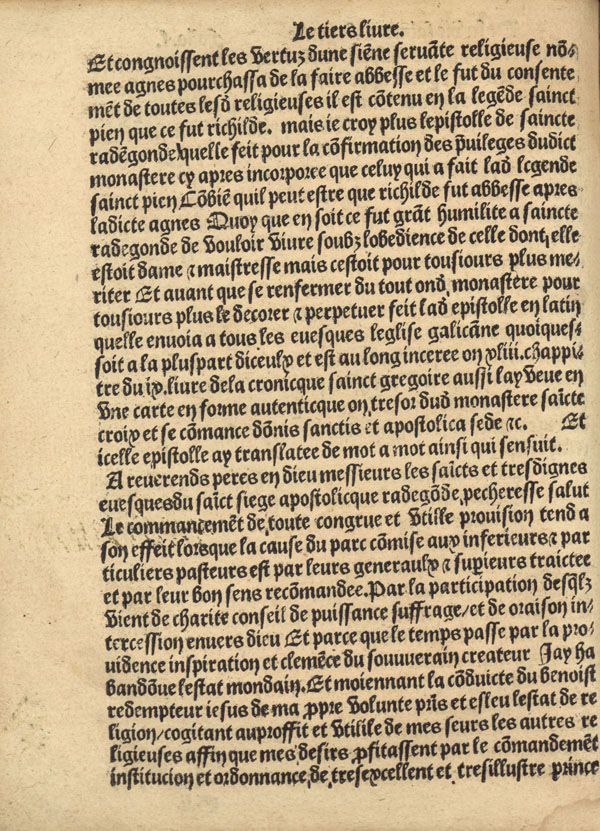 Le tiers liure.
Et congnoissent les vertuz dune siẽne seruãte religieuse nõ⸗
mee agnes pourchassa de la faire abbesse et le fut du consente
mẽt de toutes lesd̛ religieuses il est cõtenu en la legẽde sainct
pien que ce fut richilde. mais ie croy plus lepistolle de saincte
radẽgonde quelle feit pour la cõfirmation des p̃uileges dudict
monastere cy apres incorporee que celuy qui a fait lad̛ legende
sainct pien Cõbiẽ quil peut estre que richilde fut abbesse apres
ladicte agnes Quoy que en soit ce fut grãt humilite a saincte
radegonde de vouloir viure soubz lobedience de celle dont elle
estoit dame ⁊ maistresse mais cestoit pour tousiours plus me⸗
riter Et auant que se renfermer du tout ond̛ monastere pour
tousiours plus le decorer ⁊ perpetuer feit lad̛ epistolle en latin
quelle enuoia a tous les euesques leglise galicãne quoiques⸗
soit a la pluspart diceulx et est au long inceree on xliii. chappi⸗
tre du ix. liure dela cronicque sainct gregoire aussi lay veue en
vne carte en forme autenticque on tresor dud̛ monastere saĩcte
croix et se cõmance dõnis sanctis et apostolica sede ⁊c. Et
icelle epistolle ay translatee de mot a mot ainsi qui sensuit.
A reuerends peres en dieu messieurs les saĩcts et tresdignes
euesquesdu saĩct siege apostolicque radegõde pecheresse salut
Le commancemẽt de toute congrue et vtille prouision tend a
son effeit lorsque la cause du parc cõmise aux inferieurs ⁊ par
ticuliers pasteurs est par leurs generaulx ⁊ sup̱ieurs traictee
et par leur bon sens recõmandee. Par la participation desq̃lz
vient de charite conseil de puissance suffrage/ et de oraison in⸗
tercession enuers dieu Et parce que le temps passe par la pro⸗
uidence inspiration et clemẽce du souuuerain createur Jay ha
bandõue lestat mondain. Et moiennant la cõduicte du benoist
redempteur iesus de ma ꝓpre volunte prĩs et esleu lestat de re
ligion/ cogitant auproffit et vtilile de mes seurs les autres re
ligieuses affin que mes desirs ꝓfitassent par le cõmandemẽt
institucion et ordonnance de tresexcellent et tresillustre prince